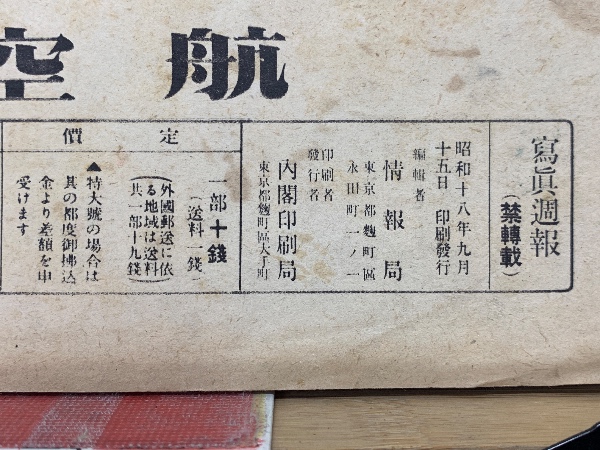 航空
寫眞週報
(禁轉載)
昭和十八年九月
十五日 印刷發行
編輯者
情報局
東京都麴町區
永田町一ノ一
印刷者
發行者
內閣印刷局
東京都麴町區大手町
定價
一部十錢
(送料一錢)
(外國郵送に依
る地域は送料
共一部十九錢)
▲特大號の場合は
其の都度御拂込
金より差額を申
受けます